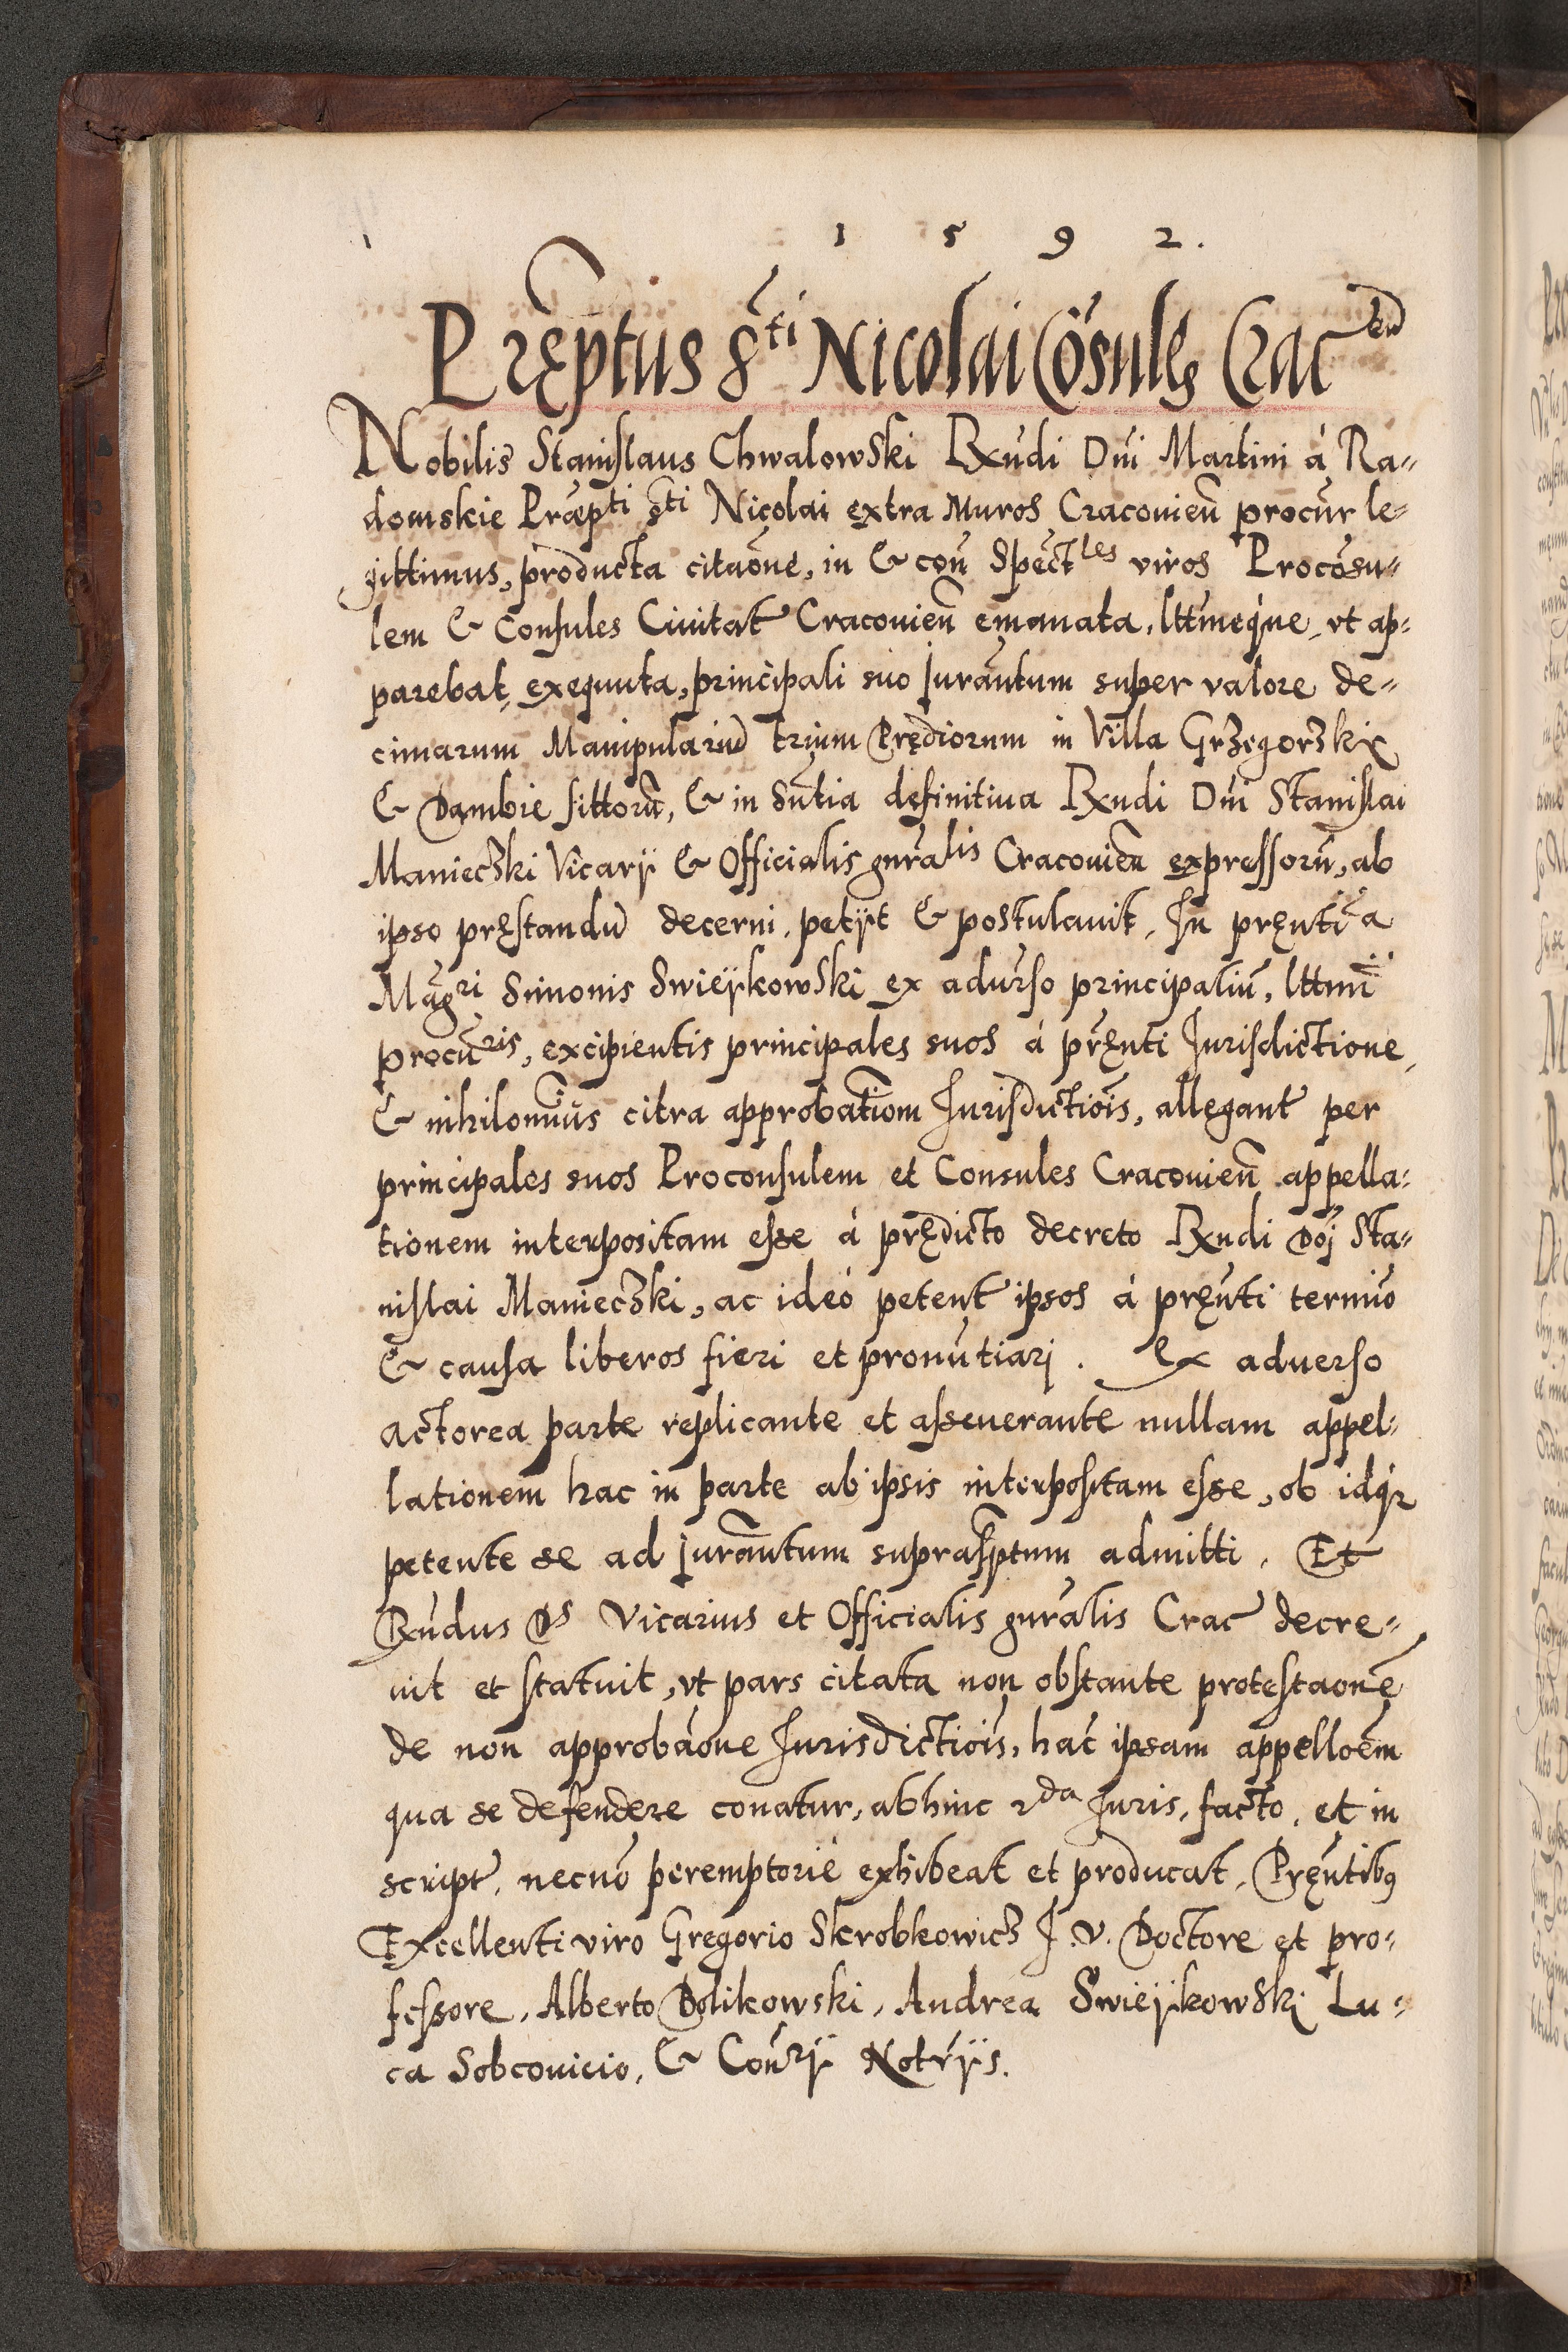 1 5 9 2.
Pręptus S^ti Nicolai Cõsules Crac^en
Nobilis Stanislaus Chwalowski Rxñdi Dñi Martini à Ra-
domskie Præp^ti S^ti Nicolai extra Muros Cracouieñ procũr le-
gittimus, producta citãone, in & coñ Spect^les viros Procõsu-
lem & Consules Ciuitat Cracouieñ emanata, lttimeq̃ue, vt ap-
parebat, exequuta, principali suo jurãntum super valore de-
cimarum Manipulariũ trium Prędiorum in Villa Grzegorzkix
& Dąmbie sittorũ, & in sñtia definitiua Rxñdi Dñi Stanislai
Manieczki Vicarÿ & Officialis gñralis Cracouieñ expressorũ, ab
ipso pręstandũ decerni, petÿt & postulauit, In pręñtia
Mãg^ri Simonis Swieÿkowski ex aduřso principaliũ, lttimi
procũ^ris, excipientis principales suos á pręñti Jurisdictione,
& nihilomĩus citra approbatiom̃ Jurisdictiõis, allegant per
principales suos Proconsulem et Consules Cracouieñ appella-
tionem interpositam esse à prędicto decreto Rxñdi Dñj Sta-
nislai Manieczki, ac ideó petent ipsos à pręñti termĩo
& causa liberos fieri et pronũtiarj. Ex aduerso
actorea parte replicante et asseuerante nullam appel-
lationem hac in parte ab ipsis interpositam esse, ob idq̃
petente se ad jurãntum suprasp̃tum admitti. Et
Rxñdus D^s Vicarius et Officialis gñralis Crac decre-
uit et statuit, vt pars citata non obstante protestaonẽ
de non approbãone Jurisdictiõis, hac̃ ipsam appelloẽm
qua se defendere conatur, abhinc 2^da Juris, facto, et in
script, necnõ peremptorié exhibeat et producat, Pręñtibꝰ
Excellenti viro Gregorio Skrobkowicz J. V. Doctore et pro-
fessore, Alberto Dolikowski, Andrea Swieÿkowskj Lu-
ca Sobcouicio, & Coñrÿ Notrÿs.